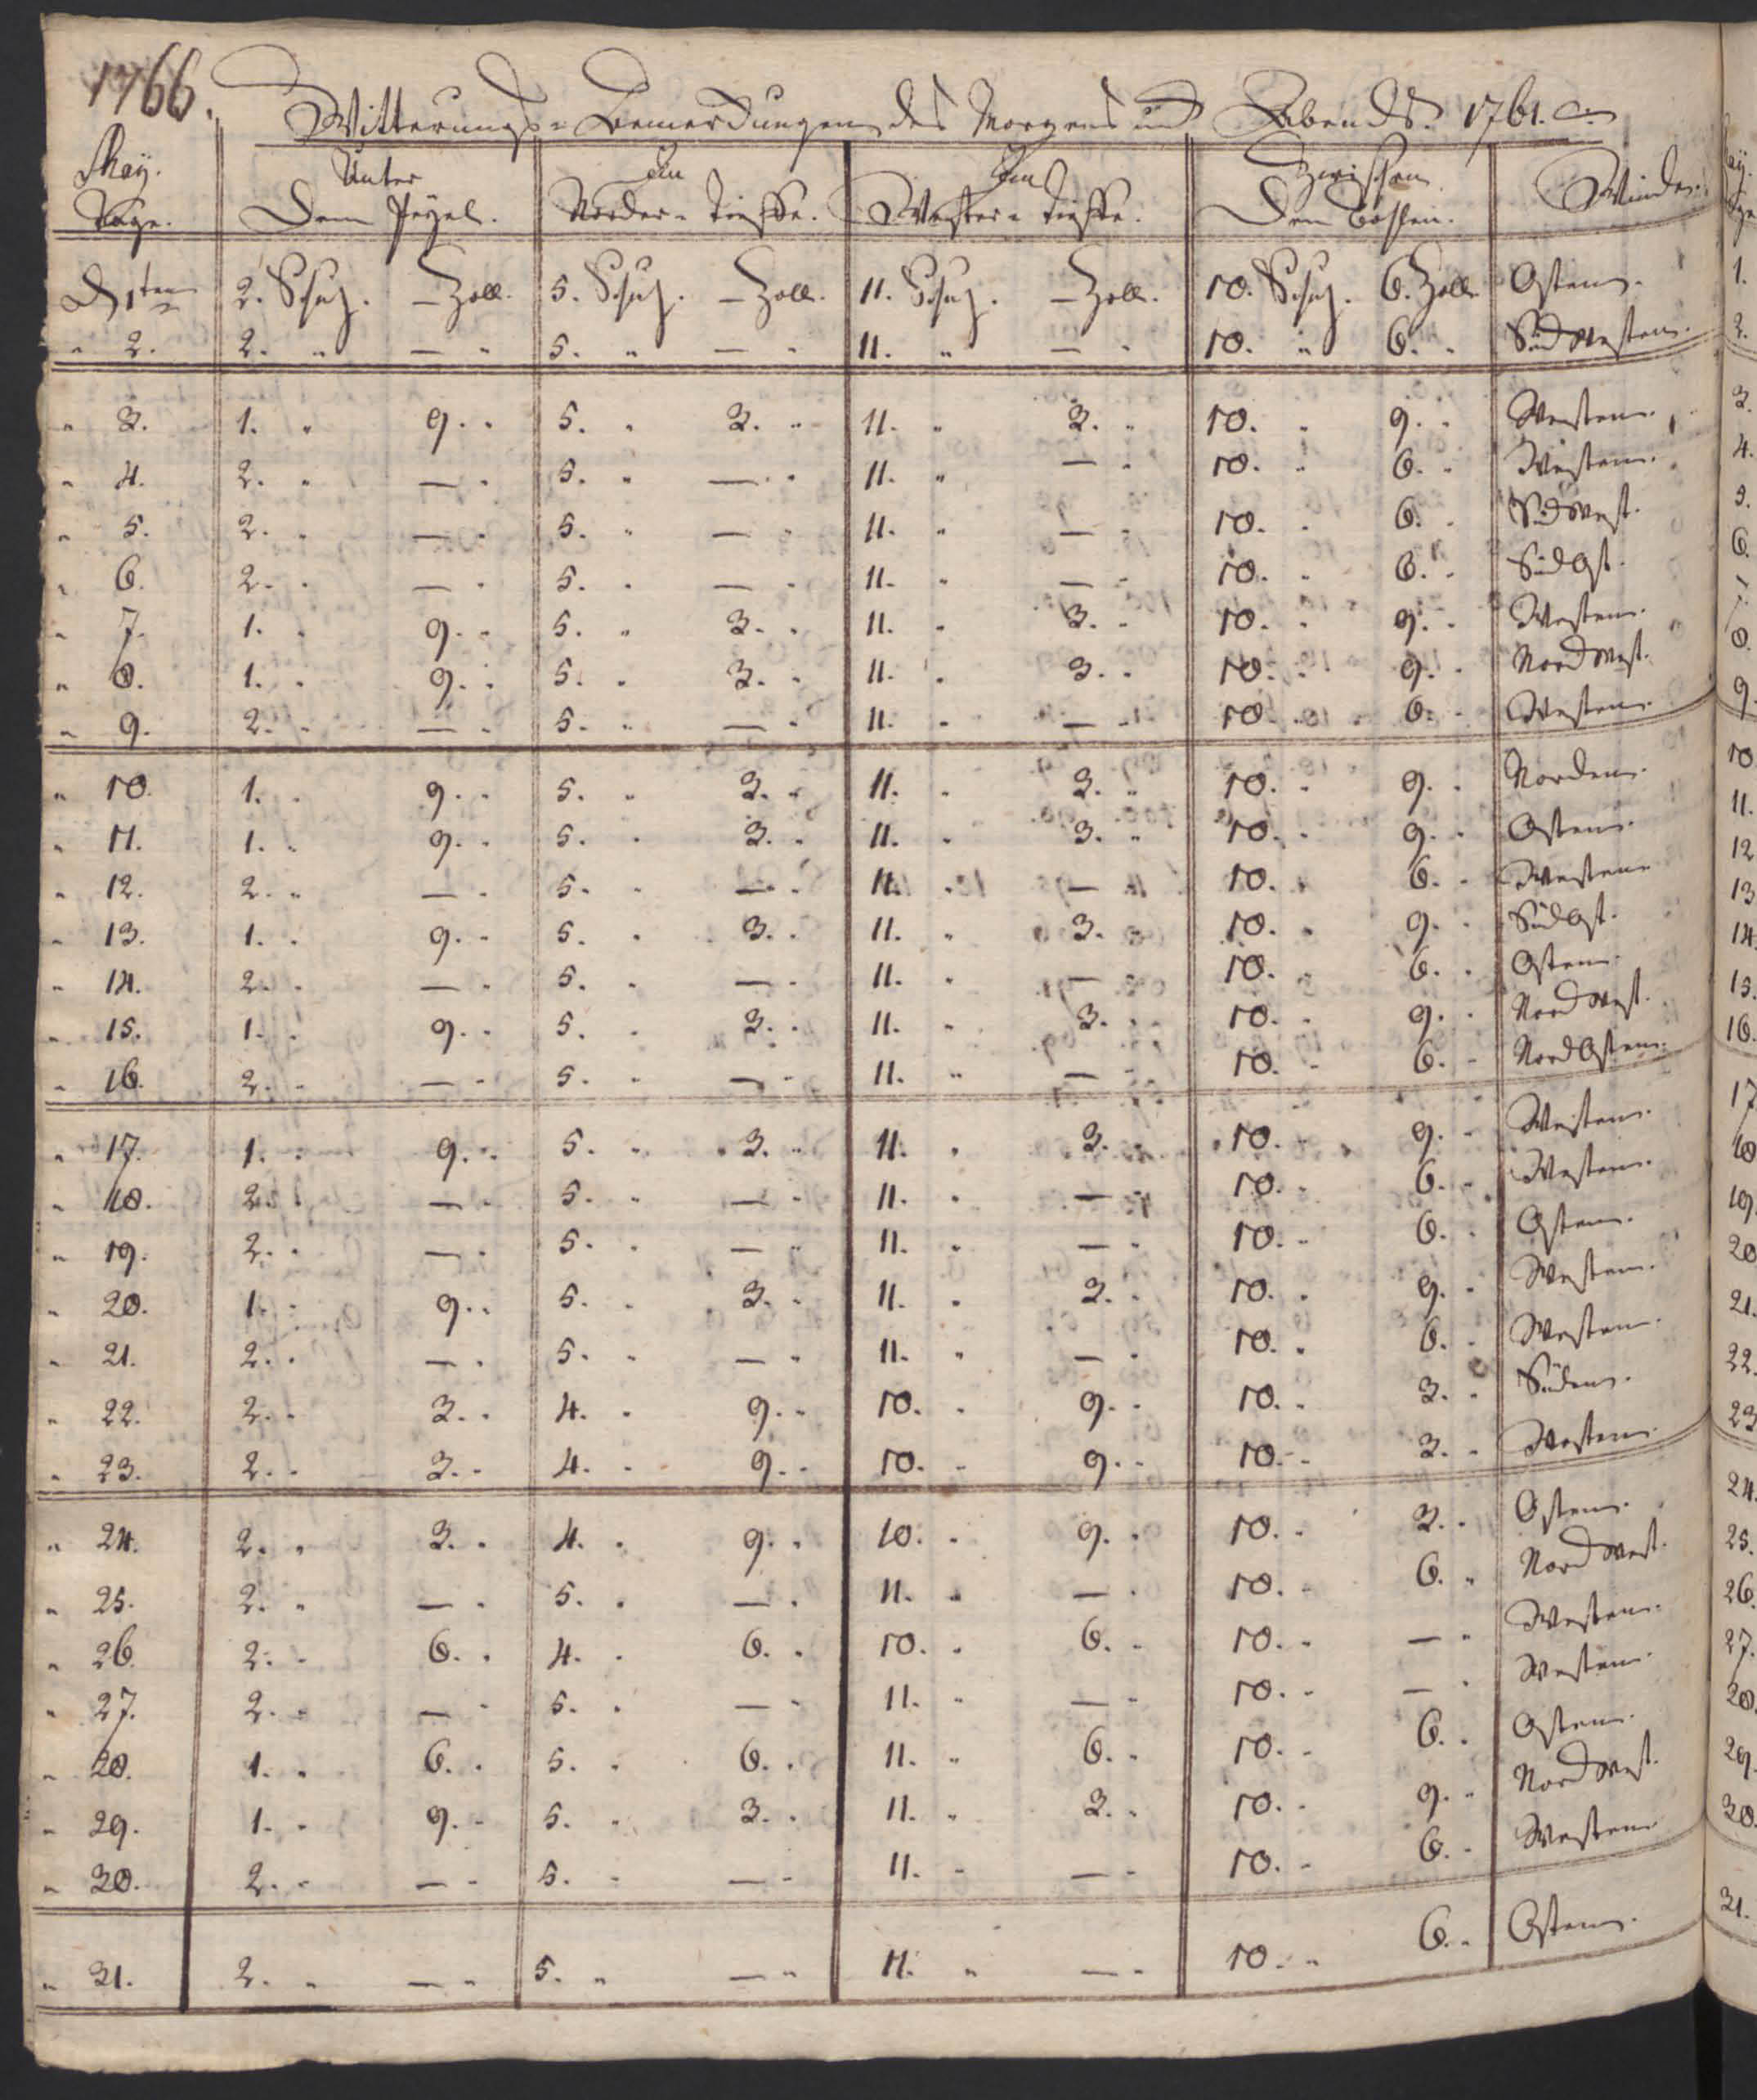 1766.
Witterungs-Bemerckungen des Morgens und Abends. 1761.
May. Tage. | Unter Dem Peyel. | Im Norder-Tieffe. | Im Wester-Tieffe. | Zwischen Den Bohlen. | Winde.
D 1ten 2. Schuh. — Zoll. 5. Schuh. — Zoll. 11. Schuh. — Zoll. 10. Schuh. 6. Zoll. Osten.
" 2. 2. " — " 5. " — " 11. " — " 10. " 6. " Südwesten.
" 3. 1. " 9. " 5. " 3. " 11. " 3. " 10. " 9. " Westen.
" 4. 2. " — " 5. " — " 11. " — " 10. " 6. " Westen.
" 5. 2. " — " 5. " — " 11. " — " 10. " 6. " Südwest.
" 6. 2. " — " 5. " — " 11. " — " 10. " 6. " SüdOst.
" 7. 1. " 9. " 5. " 3. " 11. " 3. " 10. " 9. " Westen.
" 8. 1. " 9. " 5. " 3. " 11. " 3. " 10. " 9. " Nordwest.
" 9. 2. " — " 5. " — " 11. " — " 10. " 6. " Westen.
" 10. 1. " 9. " 5. " 3. " 11. " 3. " 10. " 9. " Norden.
" 11. 1. " 9. " 5. " 3. " 11. " 3. " 10. " 9. " Osten.
" 12. 2. " — " 5. " — " 11. " — " 10. " 6. " Westen
" 13. 1. " 9. " 5. " 3. " 11. " 3. " 10. " 9. " SüdOst.
" 14. 2. " — " 5. " — " 11. " — " 10. " 6. " Osten.
" 15. 1. " 9. " 5. " 3. " 11. " 3. " 10. " 9. " Nordwest.
" 16. 2. " — " 5. " — " 11. " — " 10. " 6. " NordOsten.
" 17. 1. " 9. " 5. " 3. " 11. " 3. " 10. " 9. " Westen.
" 18. 2. " — " 5. " — " 11. " — " 10. " 6. " Westen.
" 19. 2. " — " 5. " — " 11. " — " 10. " 6. " Osten.
" 20. 1. " 9. " 5. " 3. " 11. " 3. " 10. " 9. " Westen.
" 21. 2. " — " 5. " — " 11. " — " 10. " 6. " Westen.
" 22. 2. " 3. " 4. " 9. " 10. " 9. " 10. " 3. " Süden.
" 23. 2. " 3. " 4. " 9. " 10. " 9. " 10. " 3. " Westen.
" 24. 2. " 3. " 4. " 9. " 10. " 9. " 10. " 3. " Osten.
" 25. 2. " — " 5. " — " 11. " — " 10. " 6. " Nordwest.
" 26. 2. " 6. " 4. " 6. " 10. " 6. " 10. " — " Westen.
" 27. 2. " — " 5. " — " 11. " — " 10. " — " Westen.
" 28. 1. " 6. " 5. " 6. " 11. " 6. " 10. " 6. " Osten.
" 29. 1. " 9. " 5. " 3. " 11. " 3. " 10. " 9. " Nordwest.
" 30. 2. " — " 5. " — " 11. " — " 10. " 6. " Westen
" 31. 2. " — " 5. " — " 11. " — " 10. " 6. " Osten.
1.
2.
3.
4.
5.
6.
7.
8.
9.
10
11.
12
13
14.
15.
16.
17
18
19.
20
21.
22.
23
24.
25.
26.
27.
28.
29.
30.
31.